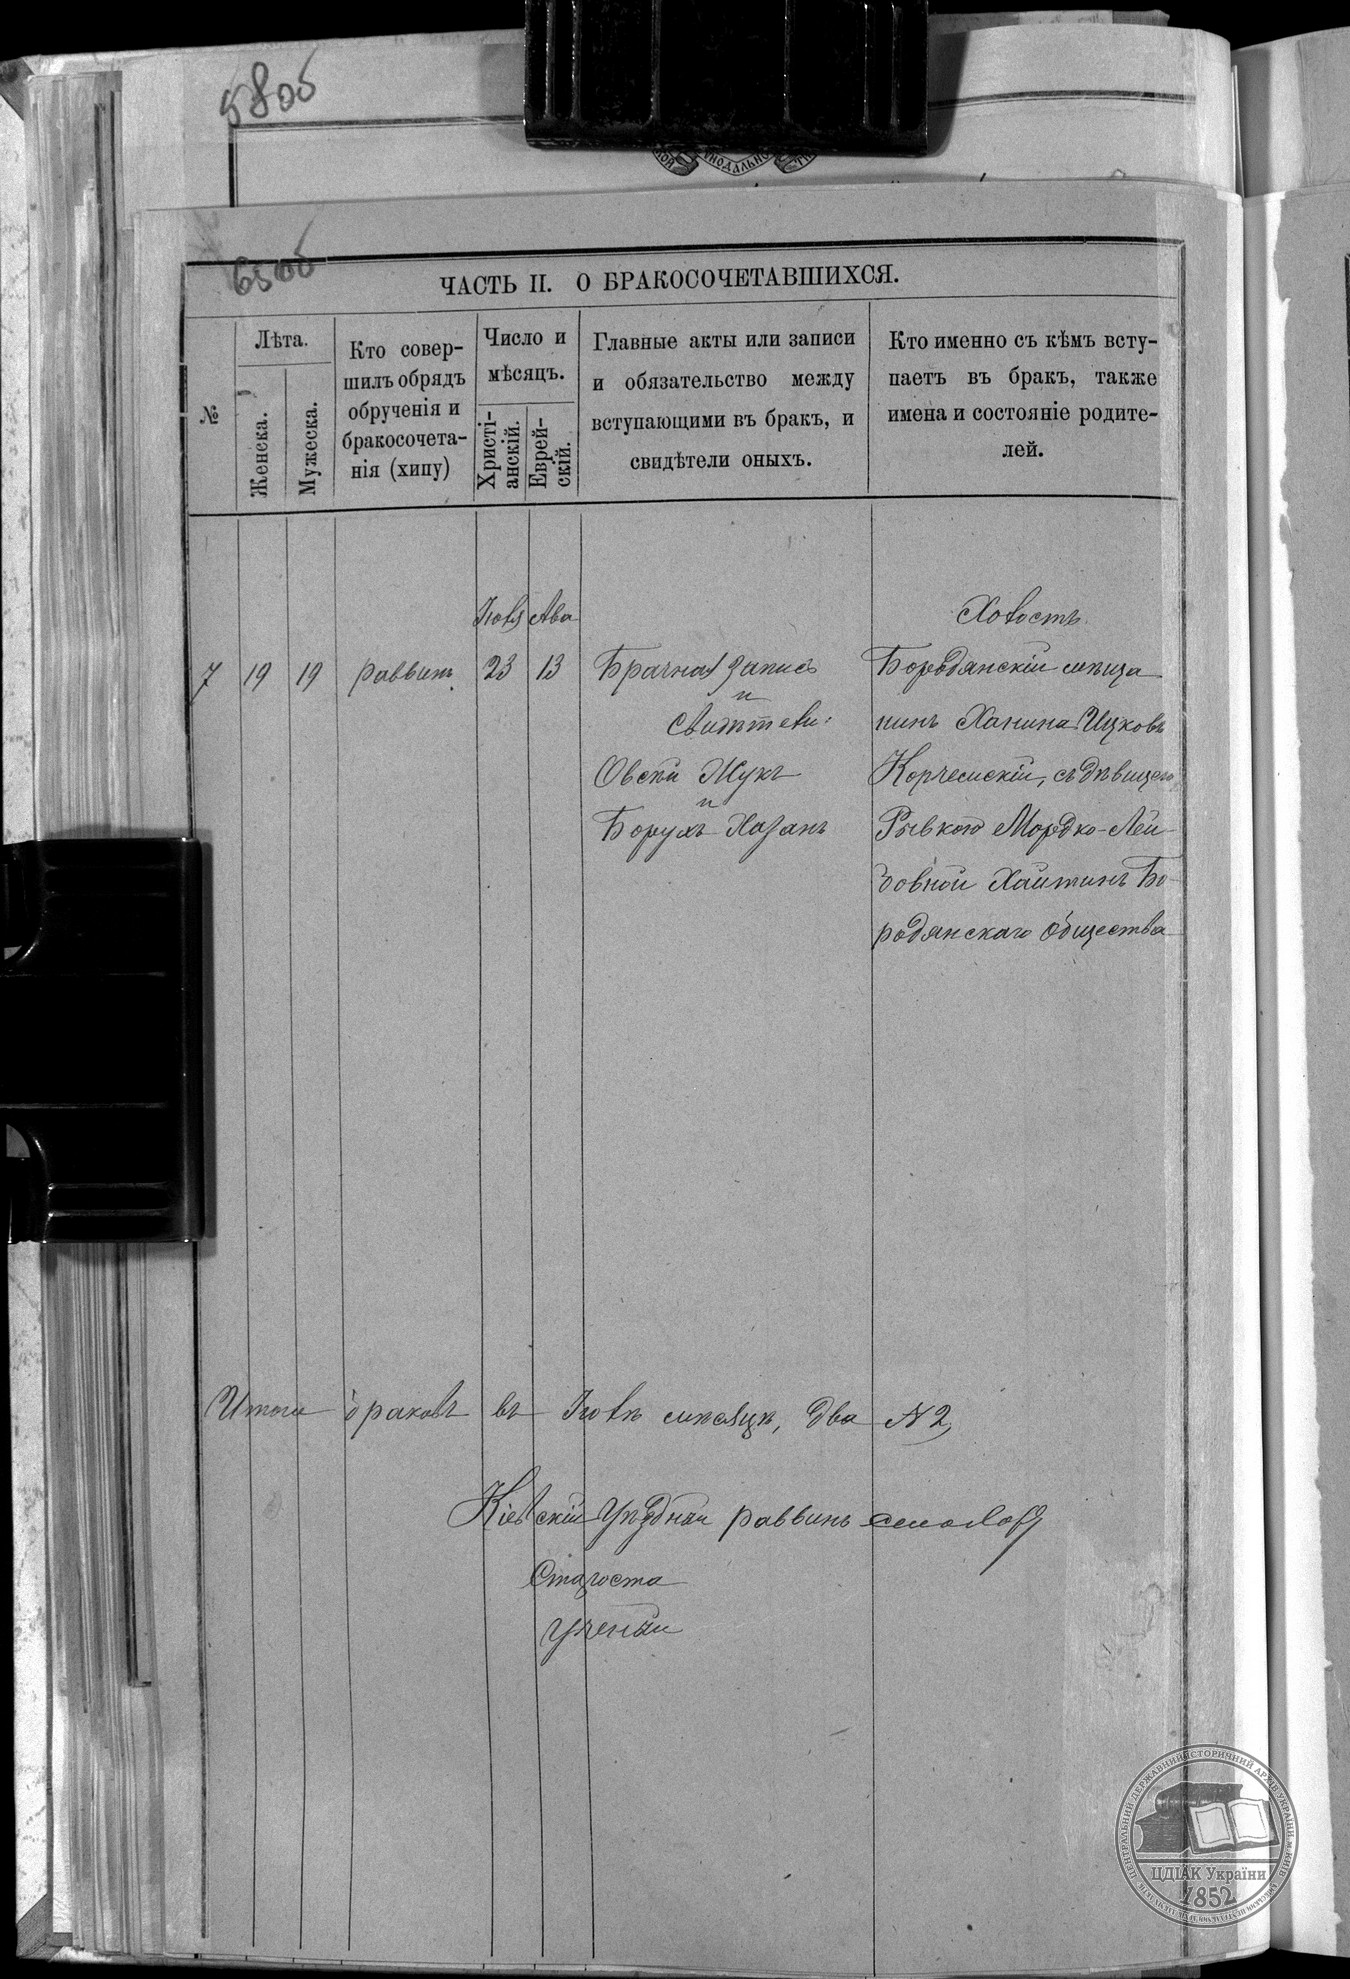 58об
65об
ЧАСТЬ II. О БРАКОСОЧЕТАВШИХСЯ.
№
Лѣта.
Женска.
Мужеска.
Кто совер-
шилъ обрядъ
обрученія и
бракосочета-
нія (хипу)
Число и
мѣсяцъ.
Христі-
анскій.
Еврей-
скій.
Главные акты или записи
и обязательство между
вступающими въ бракъ, и
свидѣтели оныхъ.
Кто именно съ кѣмъ всту-
паетъ въ бракъ, также
имена и состояніе родите-
лей.
Іюля Ава
Холостъ
7 19 19 раввинъ 23 13 Брачная запись
и
Свидѣтели:
Овсѣй Жукъ
и
Борухъ Хазанъ
Бородянскій мѣща
нинъ Ханина Ицковъ
Корчемскій, съ дѣвицею
Рывкою Мордко-Лей-
бовной Хайтинъ Бо-
родянскаго общества
Итого браковъ въ Іюлѣ мѣсяцѣ, два № 2
Кіевскій Уѣздный раввинъ
Староста
Ученый
ЦЕНТРАЛЬНИЙ ДЕРЖАВНИЙ ІСТОРИЧНИЙ АРХІВ УКРАЇНИ, м.КИЇВ
ЦДІАК України
1852